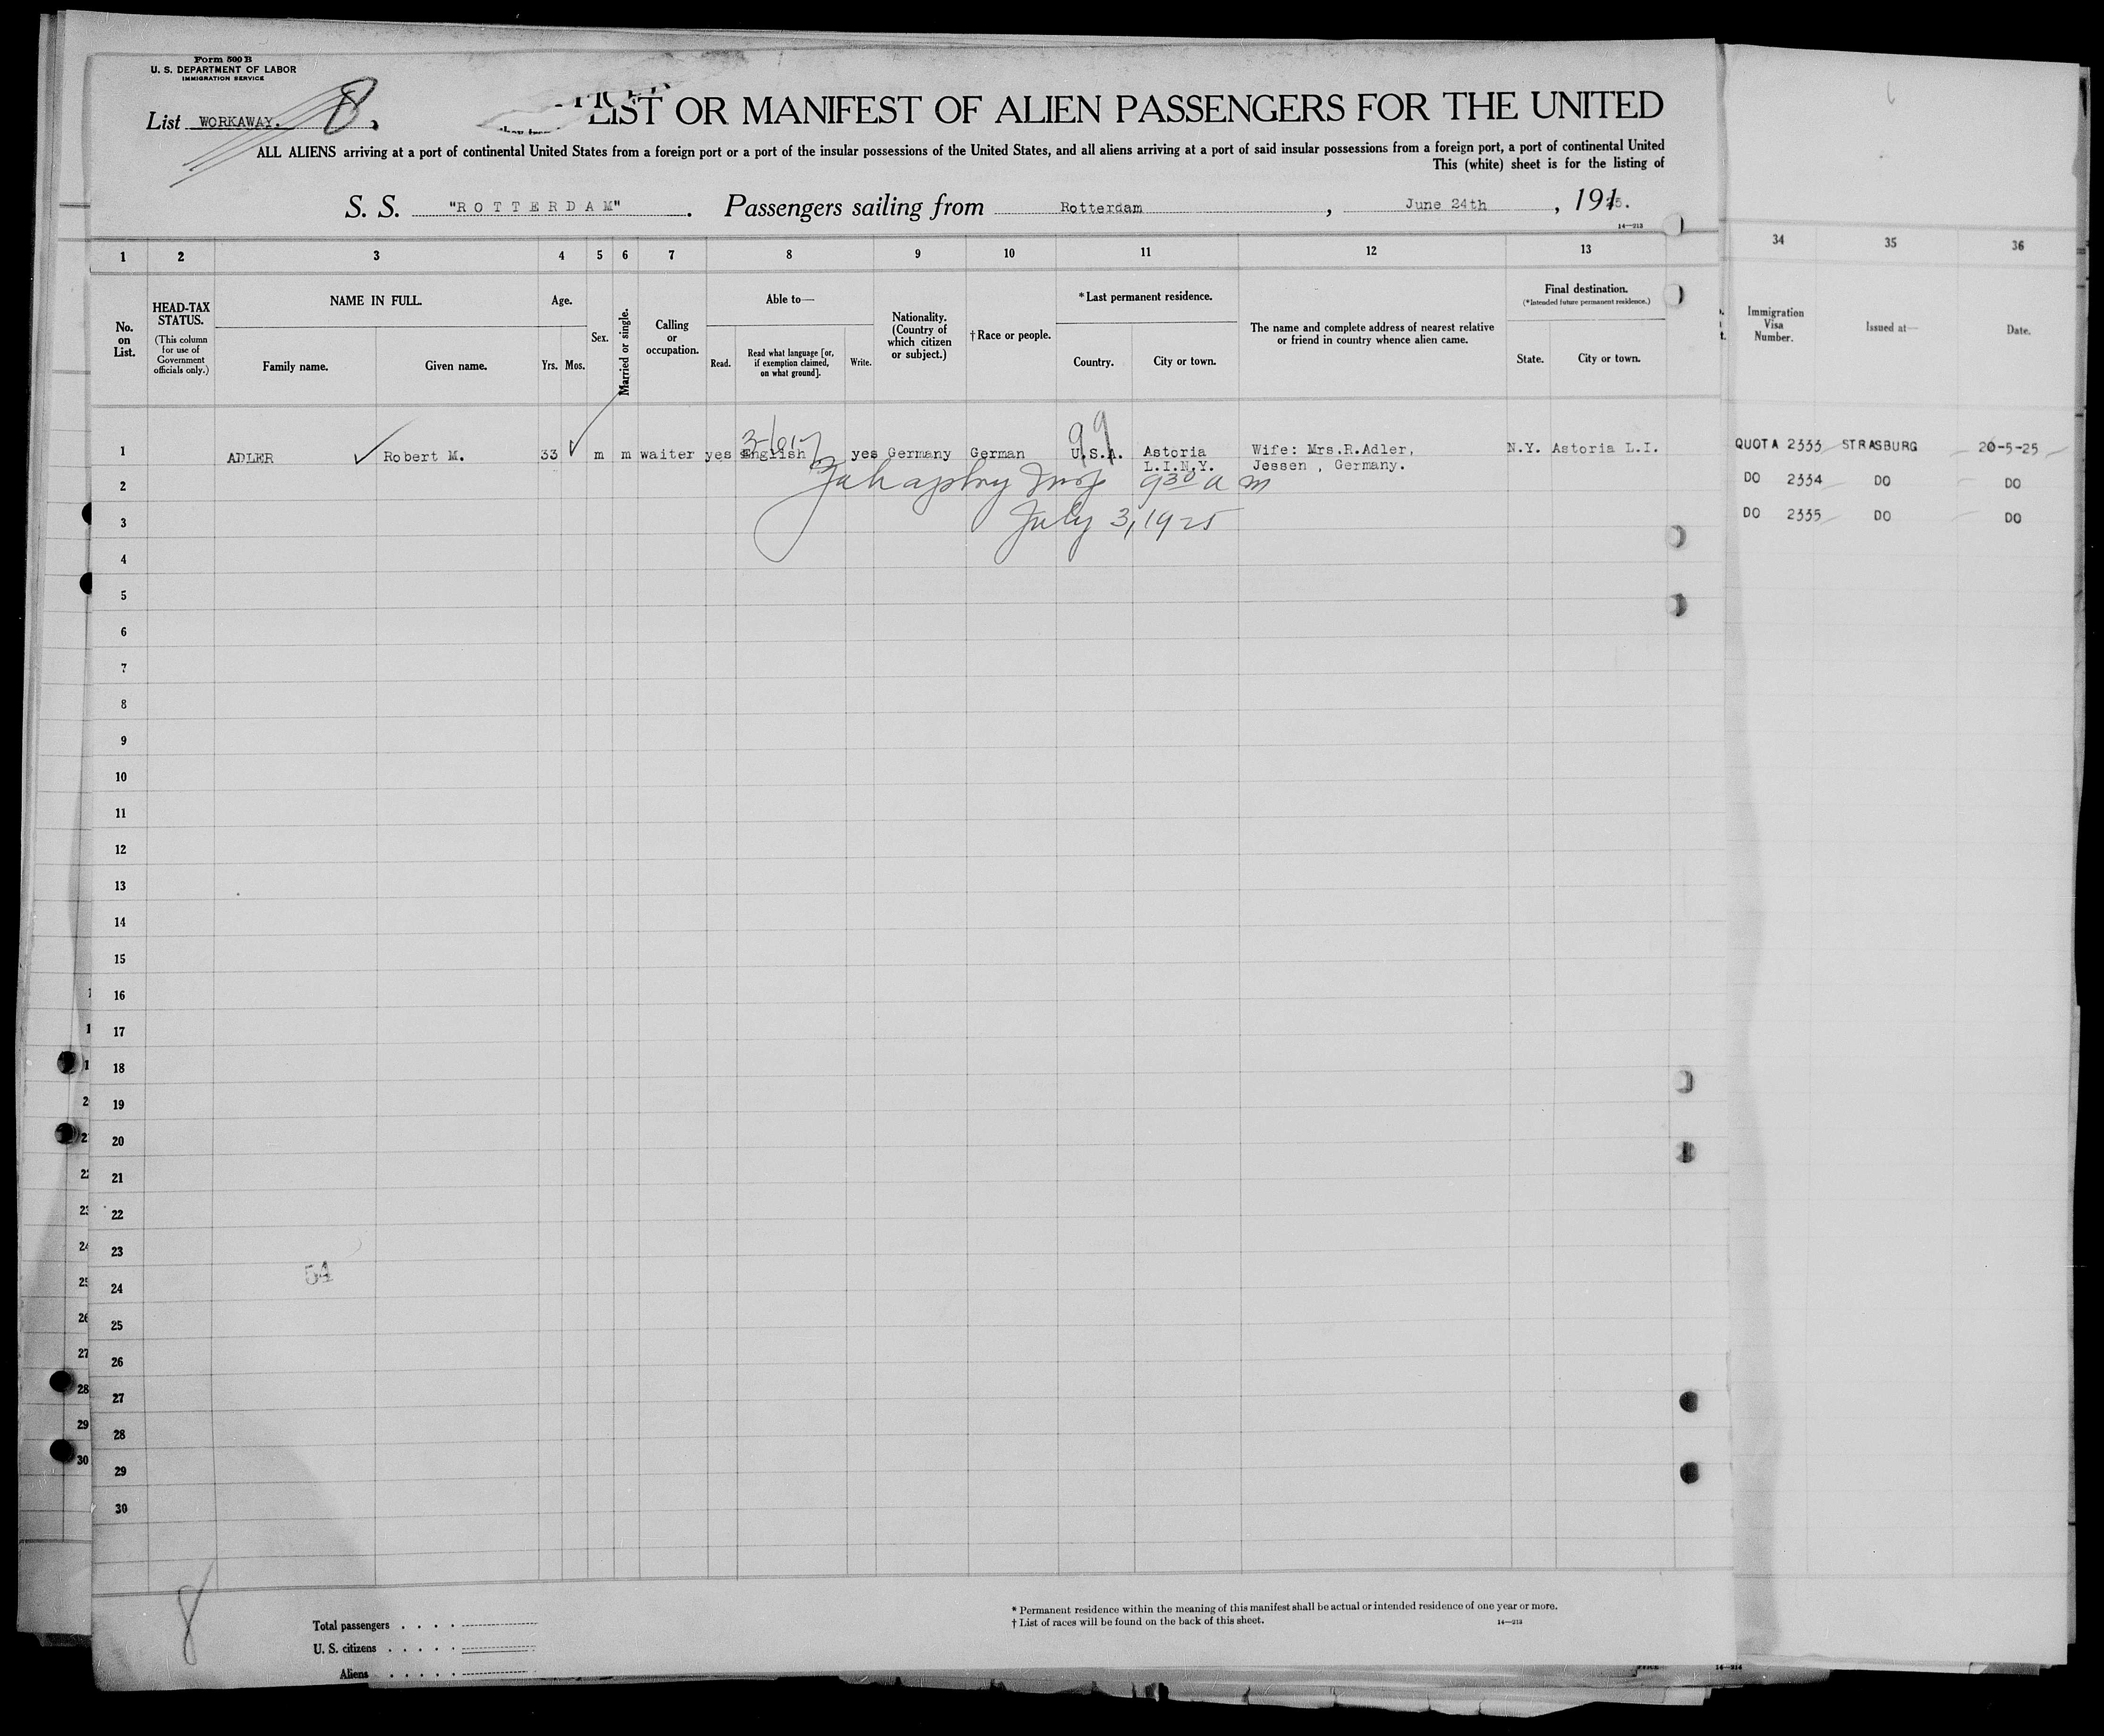 Form 500 B
U. S. DEPARTMENT OF LABOR
IMMIGRATION SERVICE
List WORKAWAY. 8.
LIST OR MANIFEST OF ALIEN PASSENGERS FOR THE UNITED
ALL ALIENS arriving at a port of continental United States from a foreign port or a port of the insular possessions of the United States, and all aliens arriving at a port of said insular possessions from a foreign port, a port of continental United
This (white) sheet is for the listing of
S. S. "ROTTERDAM". Passengers sailing from Rotterdam, June 24th, 1915.
14—213
1 2 3 4 5 6 7 8 9 10 11 12 13
No. on List.
HEAD-TAX STATUS.
(This column for use of Government officials only.)
NAME IN FULL.
Family name. Given name.
Age.
Yrs. Mos.
Sex.
Married or single.
Calling or occupation.
Able to—
Read. Read what language [or, if exemption claimed, on what ground]. Write.
Nationality. (Country of which citizen or subject.)
†Race or people.
*Last permanent residence.
Country. City or town.
The name and complete address of nearest relative or friend in country whence alien came.
Final destination.
(*Intended future permanent residence.)
State. City or town.
1 ADLER Robert M. 33 m m waiter yes English yes Germany German U.S.A. Astoria Wife: Mrs.R.Adler, N.Y. Astoria L.I.
L.I.N.Y. Jessen , Germany.
99
2 Insp 9 30 a m
3 July 3, 1925
4
5
6
7
8
9
10
11
12
13
14
15
16
17
18
19
20
21
22
23
54
24
25
26
27
28
29
30
8
Total passengers . . . .
U. S. citizens . . . . .
Aliens . . . . .
* Permanent residence within the meaning of this manifest shall be actual or intended residence of one year or more.
† List of races will be found on the back of this sheet.
14—213
34 35 36
Immigration Visa Number.
Issued at—
Date.
QUOTA 2333 STRASBURG 20-5-25
DO 2334 DO DO
DO 2335 DO DO
14—214
22
23
24
25
26
27
28
29
30